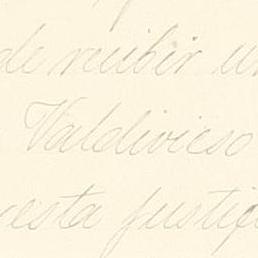 de recibir un
Valdivieso
esta justi